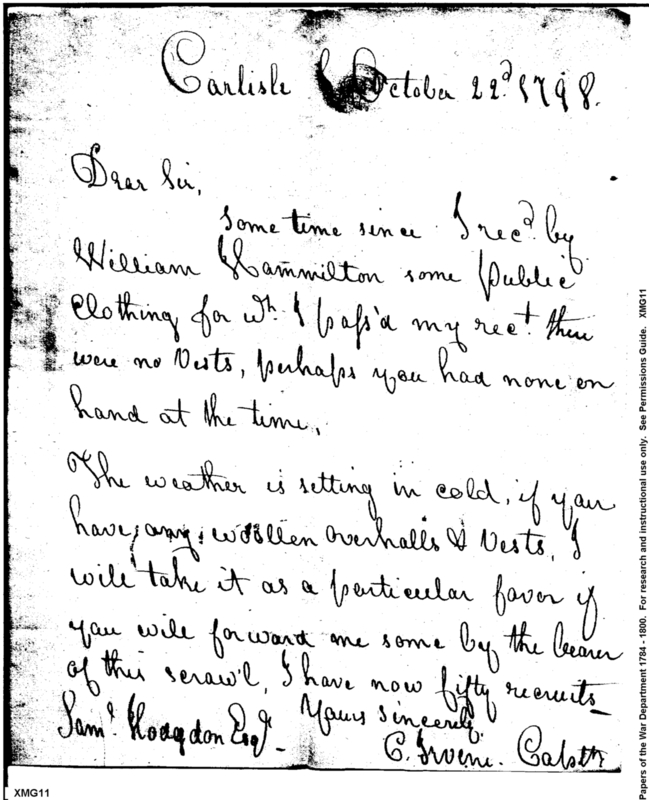 Carlisle October 22d 1798.
Dear Sir,
Some time since I recd. by
William Hammilton some public
Clothing for wh. I pass'd my rect. there
were no Vests, perhaps you had none on
hand at the time,
The weather is setting in cold, if you
have any woollen overhalls & Vests, I
will take it as a particular favor if
you will forward me some by the bearer
of this scrawl, I have now fifty recruits
Yours sincerely.
Saml. Hodgdon Esqr.
C. Irvine. Captn
XMG11
Papers of the War Department 1784 - 1800. For research and instructional use only. See Permissions Guide. XMG11